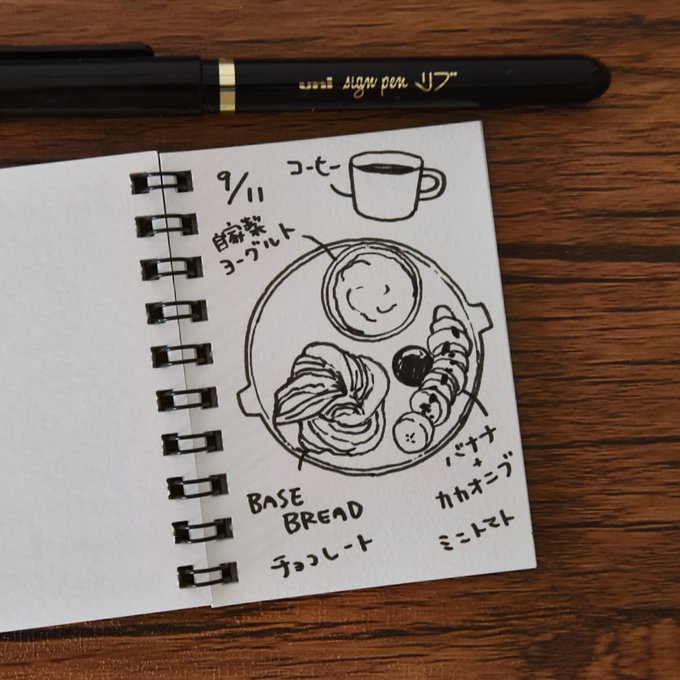 uni sign pen リブ
9/11
コーヒー
自家製
ヨーグルト
BASE
BREAD
チョコレート
バナナ
+
カカオニブ
ミニトマト